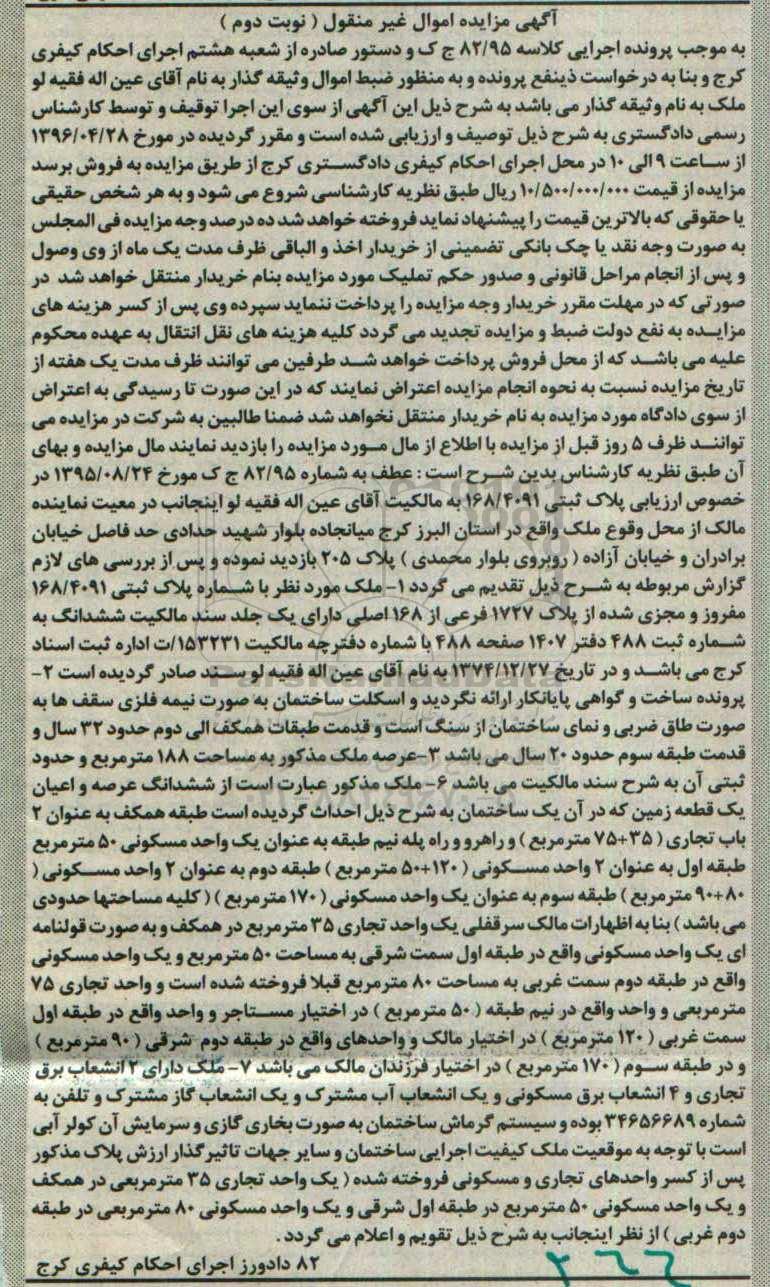 آگهی مزایده اموال غیر منقول ( نوبت دوم )
به موجب پرونده اجرایی کلاسه ۸۲/۹۵ ج ک و دستور صادره از شعبه هشتم اجرای احکام کیفری
کرج و بنا به درخواست ذینفع پرونده و به منظور ضبط اموال وثیقه گذار به نام آقای عین اله فقیه لو
ملک به نام وثیقه گذار می باشد به شرح ذیل این آگهی از سوی این اجرا توقیف و توسط کارشناس
رسمی دادگستری به شرح ذیل توصیف و ارزیابی شده است و مقرر گردیده در مورخ ۱۳۹۶/۰۴/۲۸
از ساعت ۹ الی ۱۰ در محل اجرای احکام کیفری دادگستری کرج از طریق مزایده به فروش برسد
مزایده از قیمت ۱۰/۵۰۰/۰۰۰/۰۰۰ ریال طبق نظریه کارشناسی شروع می شود و به هر شخص حقیقی
یا حقوقی که بالاترین قیمت را پیشنهاد نماید فروخته خواهد شد ده درصد وجه مزایده فی المجلس
به صورت وجه نقد یا چک بانکی تضمینی از خریدار اخذ و الباقی ظرف مدت یک ماه از وی وصول
و پس از انجام مراحل قانونی و صدور حکم تملیک مورد مزایده بنام خریدار منتقل خواهد شد در
صورتی که در مهلت مقرر خریدار وجه مزایده را پرداخت ننماید سپرده وی پس از کسر هزینه های
مزایده به نفع دولت ضبط و مزایده تجدید می گردد کلیه هزینه های نقل انتقال به عهده محکوم
علیه می باشد که از محل فروش پرداخت خواهد شد طرفین می توانند ظرف مدت یک هفته از
تاریخ مزایده نسبت به نحوه انجام مزایده اعتراض نمایند که در این صورت تا رسیدگی به اعتراض
از سوی دادگاه مورد مزایده به نام خریدار منتقل نخواهد شد ضمنا طالبین به شرکت در مزایده می
توانند ظرف ۵ روز قبل از مزایده با اطلاع از مال مورد مزایده را بازدید نمایند مال مزایده و بهای
آن طبق نظریه کارشناس بدین شرح است : عطف به شماره ۸۲/۹۵ ج ک مورخ ۱۳۹۵/۰۸/۲۴ در
خصوص ارزیابی پلاک ثبتی ۱۶۸/۴۰۹۱ به مالکیت آقای عین اله فقیه لو اینجانب در معیت نماینده
مالک از محل وقوع ملک واقع در استان البرز کرج میانجاده بلوار شهید حدادی حد فاصل خیابان
برادران و خیابان آزاده ( روبروی بلوار محمدی ) پلاک ۲۰۵ بازدید نموده و پس از بررسی های لازم
گزارش مربوطه به شرح ذیل تقدیم می گردد ۱- ملک مورد نظر با شماره پلاک ثبتی ۱۶۸/۴۰۹۱
مفروز و مجزی شده از پلاک ۱۷۲۷ فرعی از ۱۶۸ اصلی دارای یک جلد سند مالکیت ششدانگ به
شماره ثبت ۴۸۸ دفتر ۱۴۰۷ صفحه ۴۸۸ با شماره دفترچه مالکیت ۱۵۳۲۳۱/ت اداره ثبت اسناد
کرج می باشد و در تاریخ ۱۳۷۴/۱۲/۲۷ به نام آقای عین اله فقیه لو سند صادر گردیده است ۲-
پرونده ساخت و گواهی پایانکار ارائه نگردید و اسکلت ساختمان به صورت نیمه فلزی سقف ها به
صورت طاق ضربی و نمای ساختمان از سنگ است و قدمت طبقات همکف الی دوم حدود ۳۲ سال و
قدمت طبقه سوم حدود ۲۰ سال می باشد ۳-عرصه ملک مذکور به مساحت ۱۸۸ مترمربع و حدود
ثبتی آن به شرح سند مالکیت می باشد ۶- ملک مذکور عبارت است از ششدانگ عرصه و اعیان
یک قطعه زمین که در آن یک ساختمان به شرح ذیل احداث گردیده است طبقه همکف به عنوان ۲
باب تجاری ( ۳۵+۷۵ مترمربع ) و راهرو و راه پله نیم طبقه به عنوان یک واحد مسکونی ۵۰ مترمربع
طبقه اول به عنوان ۲ واحد مسکونی ( ۱۲۰+۵۰ مترمربع ) طبقه دوم به عنوان ۲ واحد مسکونی (
۸۰+۹۰ مترمربع ) طبقه سوم به عنوان یک واحد مسکونی ( ۱۷۰ مترمربع ) ( کلیه مساحتها حدودی
می باشد ) بنا به اظهارات مالک سرقفلی یک واحد تجاری ۳۵ مترمربع در همکف و به صورت قولنامه
ای یک واحد مسکونی واقع در طبقه اول سمت شرقی به مساحت ۵۰ مترمربع و یک واحد مسکونی
واقع در طبقه دوم سمت غربی به مساحت ۸۰ مترمربع قبلا فروخته شده است و واحد تجاری ۷۵
مترمربعی و واحد واقع در نیم طبقه ( ۵۰ مترمربع ) در اختیار مستاجر و واحد واقع در طبقه اول
سمت غربی ( ۱۲۰ مترمربع ) در اختیار مالک و واحدهای واقع در طبقه دوم شرقی ( ۹۰ مترمربع )
و در طبقه سوم ( ۱۷۰ مترمربع ) در اختیار فرزندان مالک می باشد ۷- ملک دارای ۲ انشعاب برق
تجاری و ۴ انشعاب برق مسکونی و یک انشعاب آب مشترک و یک انشعاب گاز مشترک و تلفن به
شماره ۳۴۶۵۶۶۸۹ بوده و سیستم گرماش ساختمان به صورت بخاری گازی و سرمایش آن کولر آبی
است با توجه به موقعیت ملک کیفیت اجرایی ساختمان و سایر جهات تاثیرگذار ارزش پلاک مذکور
پس از کسر واحدهای تجاری و مسکونی فروخته شده ( یک واحد تجاری ۳۵ مترمربعی در همکف
و یک واحد مسکونی ۵۰ مترمربع در طبقه اول شرقی و یک واحد مسکونی ۸۰ مترمربعی در طبقه
دوم غربی ) از نظر اینجانب به شرح ذیل تقویم و اعلام می گردد .
۸۲ دادورز اجرای احکام کیفری کرج